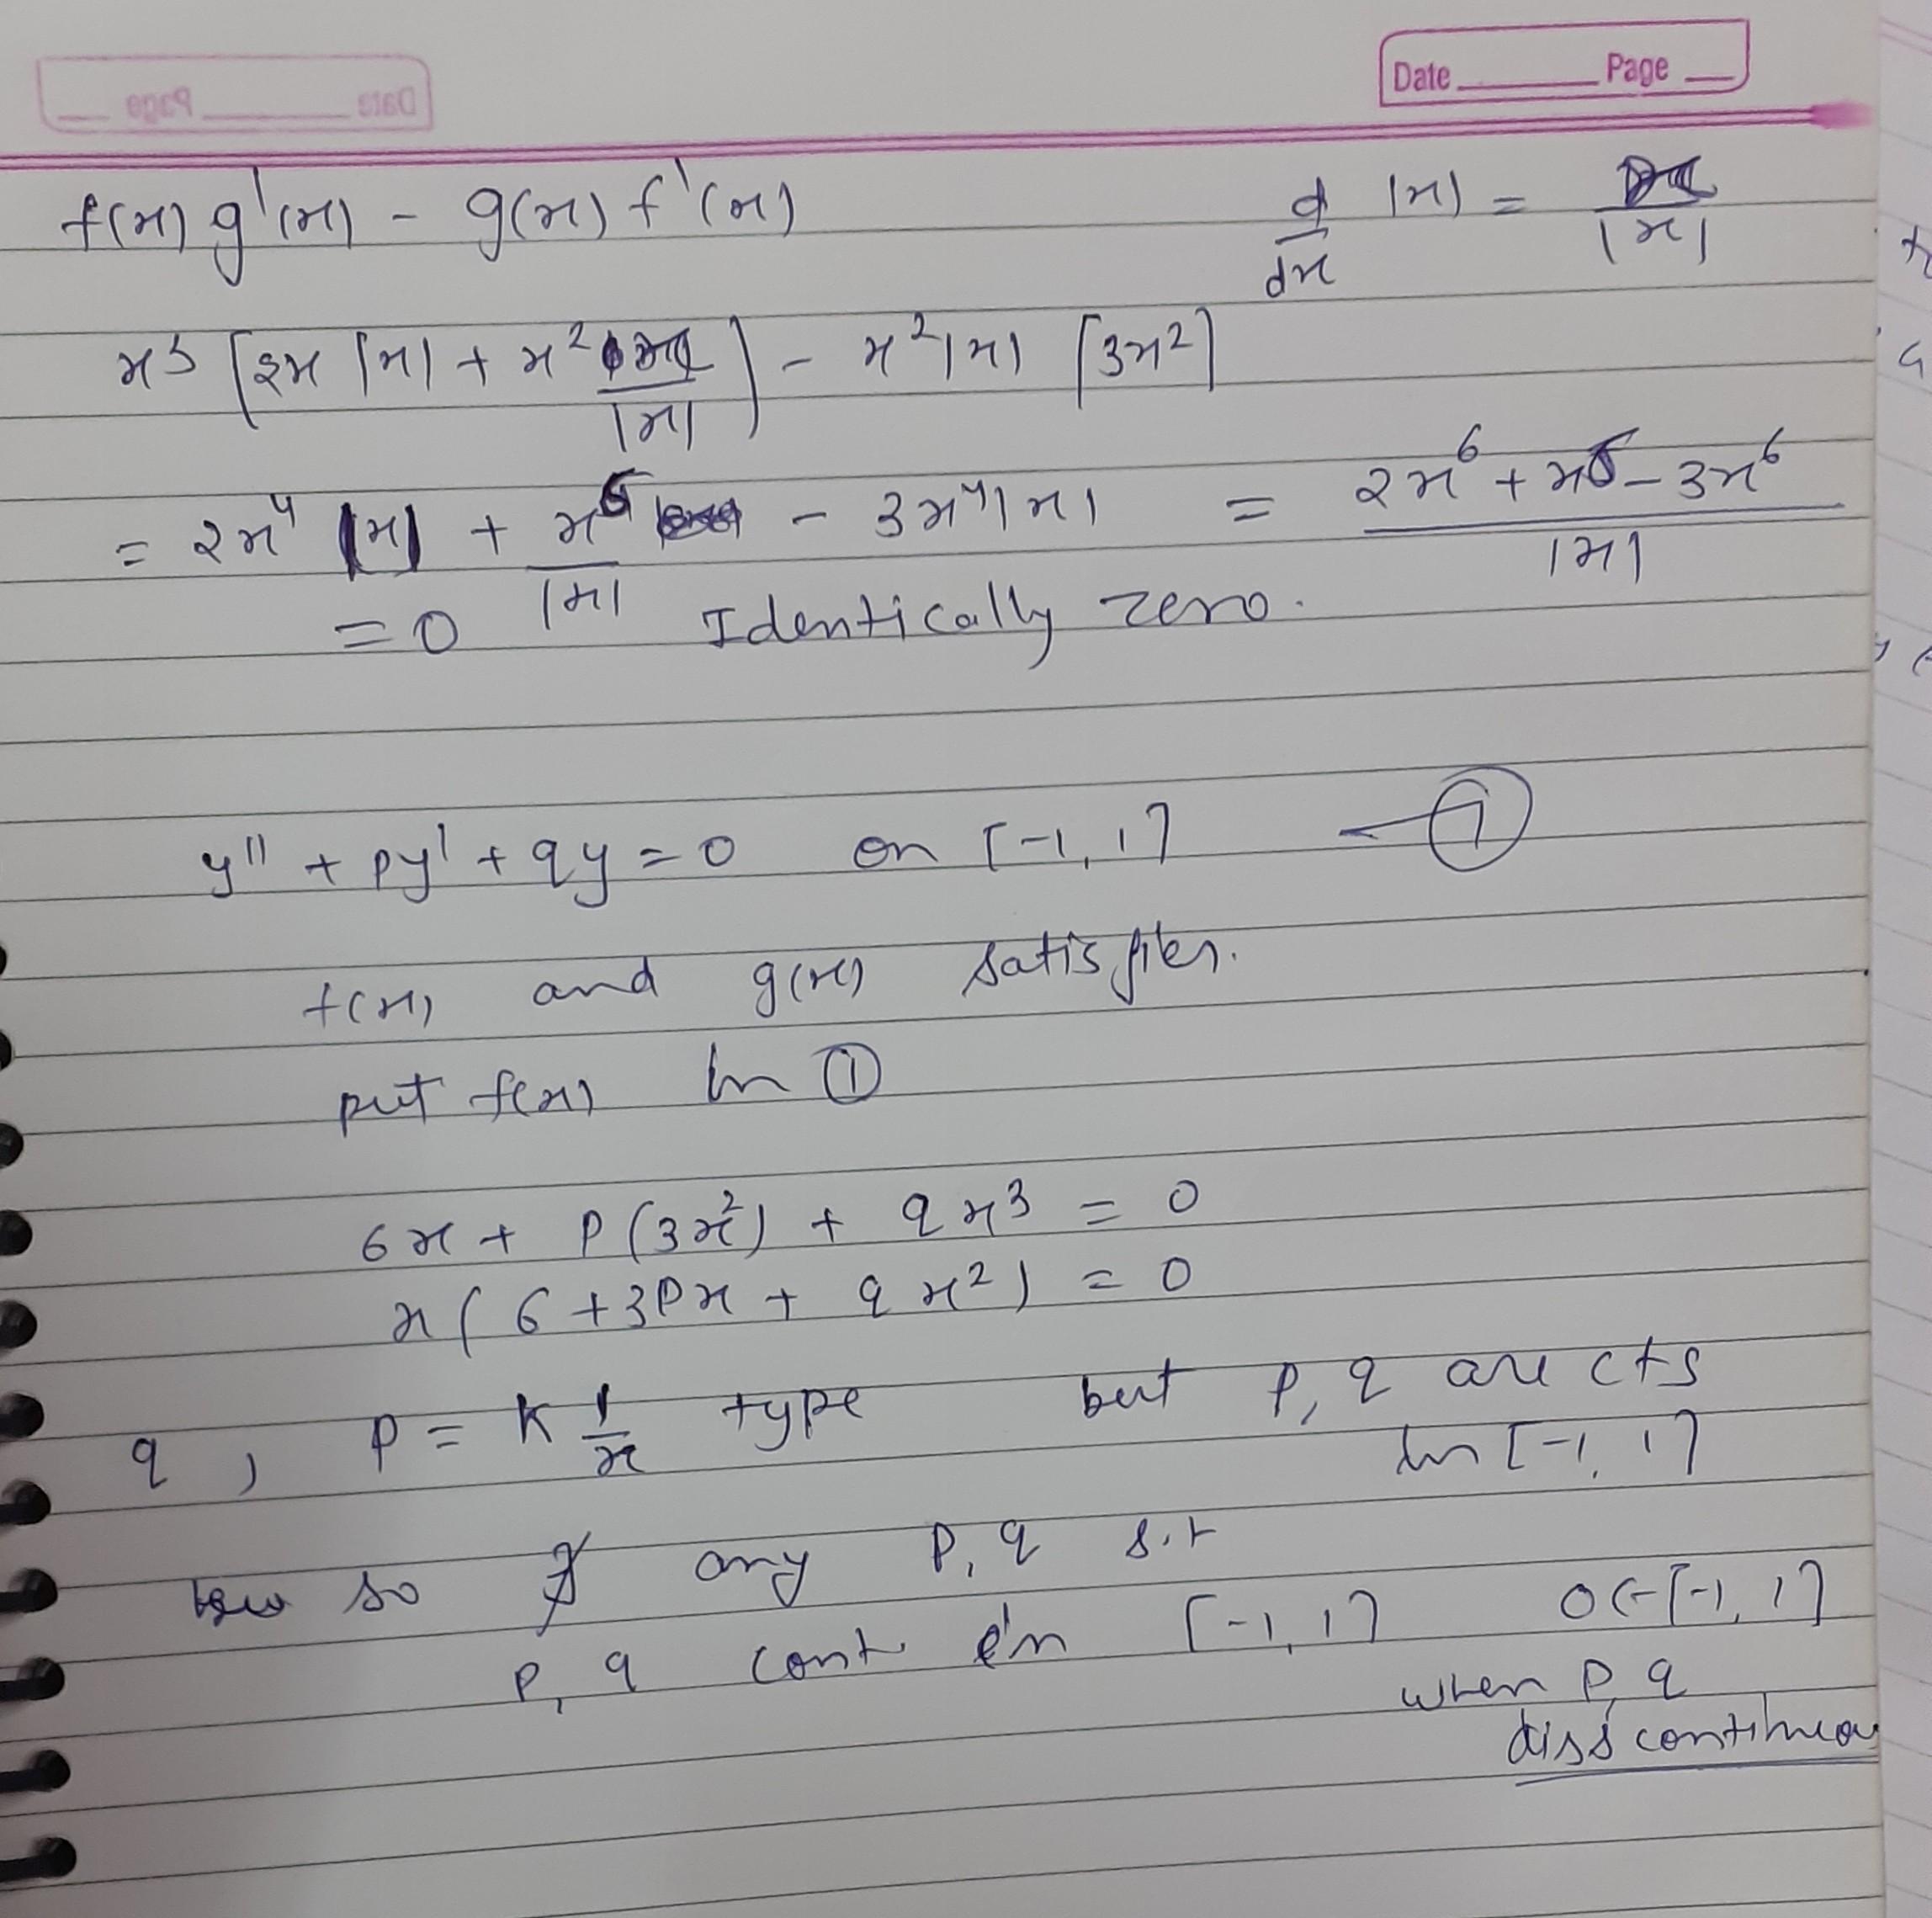 Date Page
f(x) g'(x) - g(x) f'(x)
d/dx |x| = /|x|
x³ [2x |x| + x² /|x|] - x²|x| [3x²]
= 2x⁴ |x| + x⁶/|x| - 3x⁴|x| = (2x⁶ + x⁶ - 3x⁶)/|x|
= 0 Identically zero.
y'' + py' + qy = 0 on [-1, 1] — ①
f(x) and g(x) satisfies.
put f(x) in ①
6x + P(3x²) + qx³ = 0
x(6 + 3Px + qx²) = 0
q, p = K 1/x type but P, q are cts
in [-1, 1]
so ∄ any P, q s.t
P, q cont in [-1, 1] 0 ∈ [-1, 1]
when P, q
diss continuou